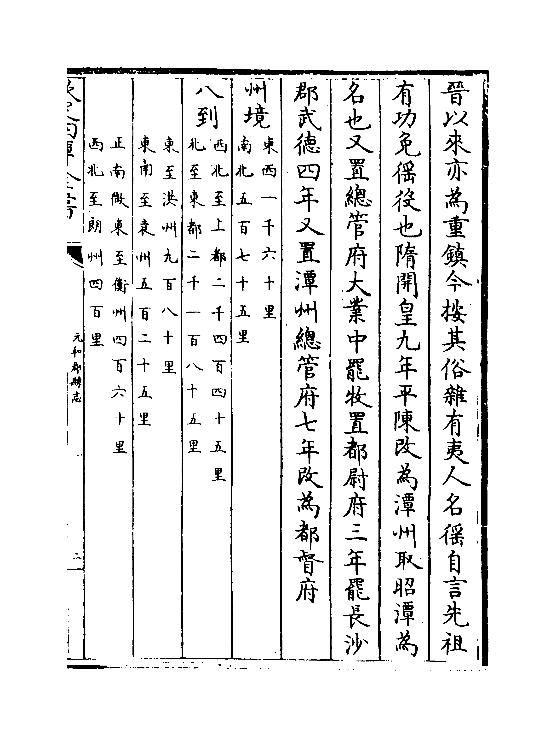 晉以來亦為重鎮今按其俗雜有夷人名徭自言先祖
有功免徭役也隋開皇九年平陳改為潭州取昭潭為
名也又置總管府大業中罷牧置都尉府三年罷長沙
郡武德四年又置潭州總管府七年改為都督府
州境
東西一千六十里
南北五百七十五里
八到
西北至上都二千四百四十五里
北至東都二千一百八十五里
東至洪州九百八十里
東南至袁州五百二十五里
正南微東至衡州四百六十里
西北至朗州四百里
元和郡縣志
二